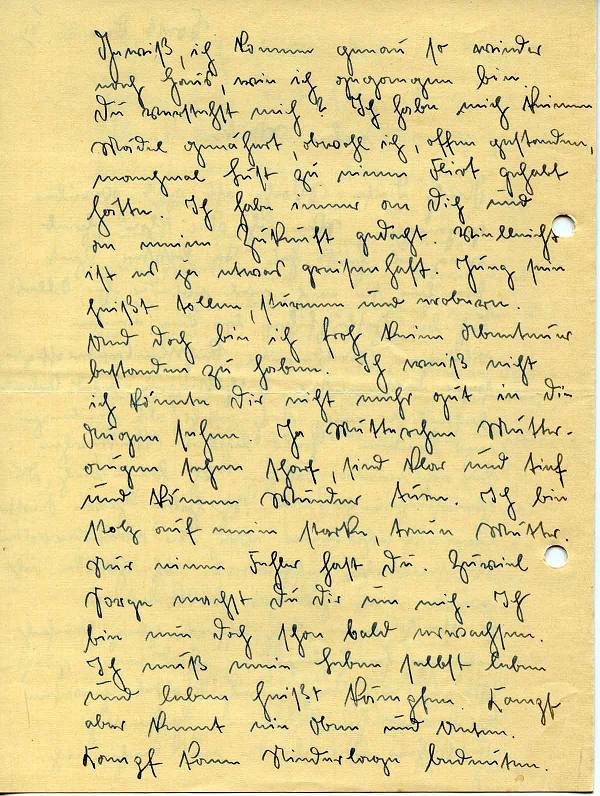 Gewiß, ich komme genau so wieder
nach Haus, wie ich gegangen bin
Du verstehst mich? Ich habe mich keinem
Mädel genähert, obwohl ich, offen gestanden,
manchmal Lust zu einem Flirt gehabt
hätte. Ich habe immer an Dich und
an meine Zukunft gedacht. Vielleicht
ist es ja etwas greisenhaft. Jung sein
heißt tollen, stürmen und erobern.
Und doch bin ich froh kein Abenteuer
bestanden zu haben. Ich weiß nicht
ich könnte Dir nicht mehr gut in die
Augen sehen. Ja Mutterchen Mutter-
augen sehen scharf, sind klar und tief
und können Wunder tuen. Ich bin
stolz auf meine starke, treue Mutter.
Nur einen Fehler hast Du. Zuviel
Sorge machst Du dir um mich. Ich
bin nun doch schon bald erwachsen.
Ich muß mein Leben selbst leben
und leben heißt kämpfen. Kampf
aber kennt ein Oben und Unten.
Kampf kann Niederlage bedeuten.